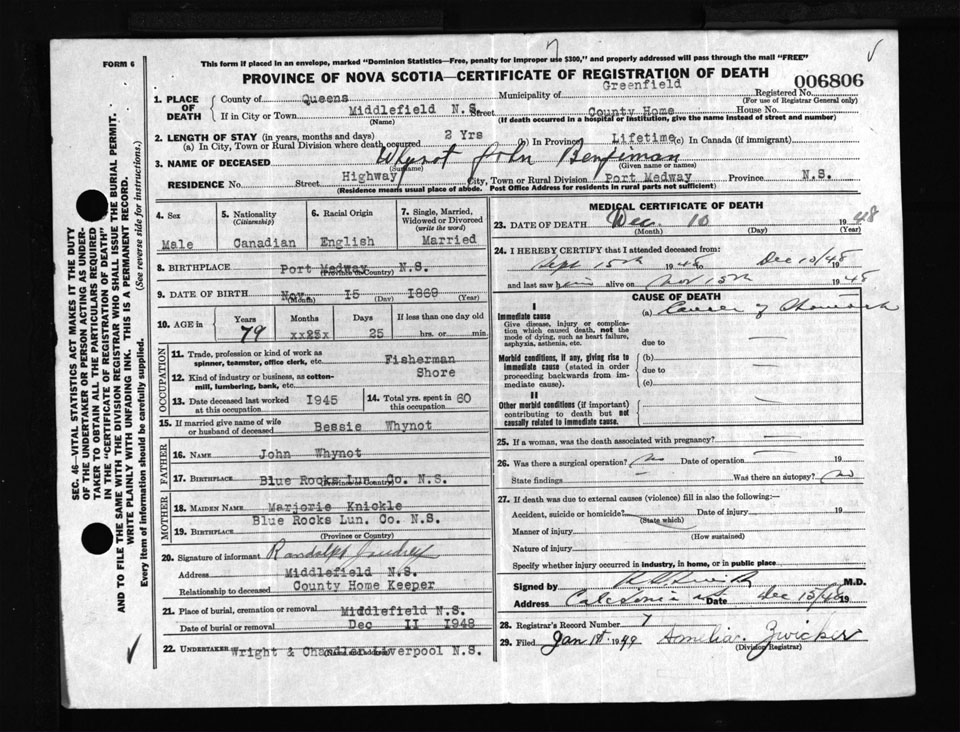 FORM 6
7
This form if placed in an envelope, marked "Dominion Statistics—Free, penalty for improper use $300," and properly addressed will pass through the mail "FREE"
PROVINCE OF NOVA SCOTIA—CERTIFICATE OF REGISTRATION OF DEATH
006806
1. PLACE OF DEATH
County of Queens
Municipality of Greenfield
Registered No.
(For use of Registrar General only)
If in City or Town Middlefield N.S. Street County Home House No.
(Name) (If death occurred in a hospital or institution, give the name instead of street and number)
2. LENGTH OF STAY (in years, months and days)
(a) In City, Town or Rural Division where death occurred 2 Yrs (b) In Province Lifetime (c) In Canada (if immigrant)
3. NAME OF DECEASED Whynot John Benjiman
(Surname) (Given name or names)
RESIDENCE No. Street Highway City, Town or Rural Division Port Medway Province N.S.
(Residence means usual place of abode. Post Office Address for residents in rural parts not sufficient)
4. Sex
Male
5. Nationality
(Citizenship)
Canadian
6. Racial Origin
English
7. Single, Married, Widowed or Divorced
(write the word)
Married
8. BIRTHPLACE Port Medway N.S.
(Province or Country)
9. DATE OF BIRTH Nov 15 1869
(Month) (Day) (Year)
10. AGE in
Years Months Days If less than one day old
79 xx25x 25 hrs. or min.
OCCUPATION
11. Trade, profession or kind of work as spinner, teamster, office clerk, etc. Fisherman
12. Kind of industry or business, as cotton-mill, lumbering, bank, etc. Shore
13. Date deceased last worked at this occupation 1945
14. Total yrs. spent in 60 this occupation
15. If married give name of wife or husband of deceased Bessie Whynot
FATHER
16. NAME John Whynot
17. BIRTHPLACE Blue Rocks Lun. Co. N.S.
(Province or Country)
MOTHER
18. MAIDEN NAME Marjorie Knickle
19. BIRTHPLACE Blue Rocks Lun. Co. N.S.
(Province or Country)
20. Signature of informant Randolph
Address Middlefield N.S.
Relationship to deceased County Home Keeper
21. Place of burial, cremation or removal Middlefield N.S.
Date of burial or removal Dec 11 1948
22. UNDERTAKER Wright & Chandler Liverpool N.S.
(Name and address)
MEDICAL CERTIFICATE OF DEATH
23. DATE OF DEATH Dec. 10 1948
(Month) (Day) (Year)
24. I HEREBY CERTIFY that I attended deceased from:
Sept 15th 1948 to Dec 10/48
and last saw him alive on Nov 15th 1948
CAUSE OF DEATH
I
Immediate cause
Give disease, injury or complication which caused death, not the mode of dying, such as heart failure, asphyxia, asthenia, etc.
(a) Cancer of Stomach
due to
Morbid conditions, if any, giving rise to immediate cause (stated in order proceeding backwards from immediate cause).
(b)
due to
(c)
II
Other morbid conditions (if important) contributing to death but not causally related to immediate cause.
25. If a woman, was the death associated with pregnancy?
26. Was there a surgical operation? no Date of operation 19
State findings Was there an autopsy? no
27. If death was due to external causes (violence) fill in also the following:—
Accident, suicide or homicide? Date of injury 19
(State which)
Manner of injury
(How sustained)
Nature of injury
Specify whether injury occurred in industry, in home, or in public place
Signed by M.D.
Address Caledonia Date Dec 15/48 19
28. Registrar's Record Number 7
29. Filed Jan 1st 1949 Amelia Zwicker
(Division Registrar)
SEC. 46—VITAL STATISTICS ACT MAKES IT THE DUTY
OF THE UNDERTAKER OR PERSON ACTING AS UNDER-
TAKER TO OBTAIN ALL THE PARTICULARS REQUIRED
IN THE "CERTIFICATE OF REGISTRATION OF DEATH" AND TO FILE THE SAME WITH THE DIVISION REGISTRAR WHO SHALL ISSUE THE BURIAL PERMIT.
WRITE PLAINLY WITH UNFADING INK. THIS IS A PERMANENT RECORD.
Every item of information should be carefully supplied. (See reverse side for instructions.)